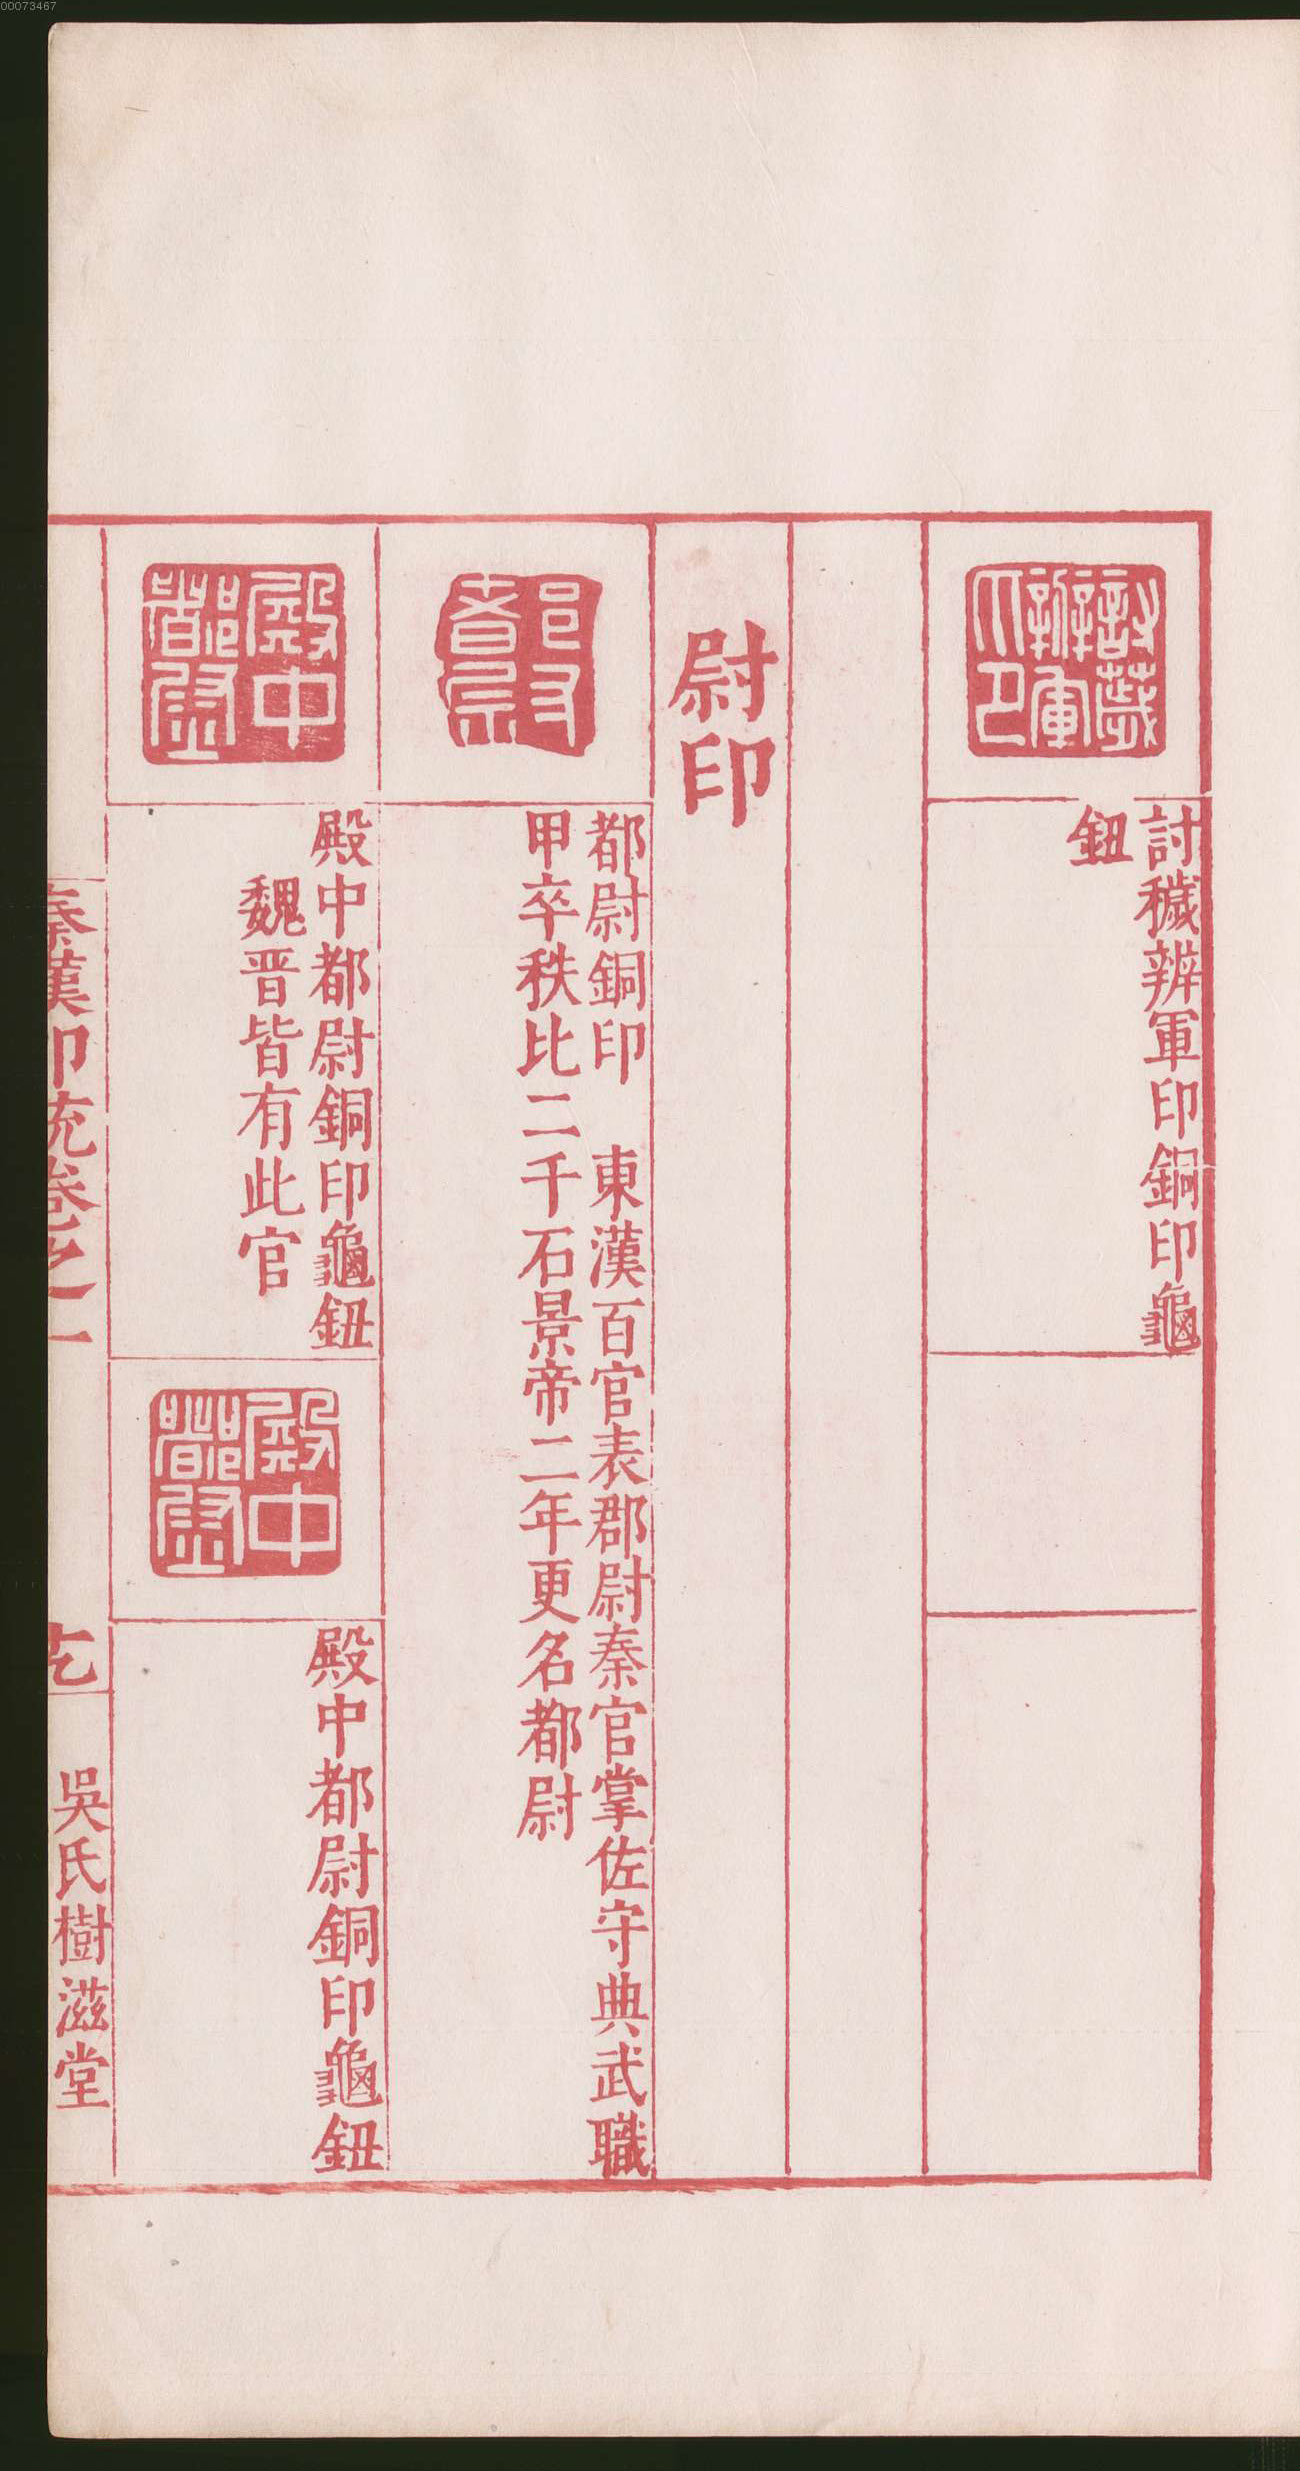 00073467
討穢辨軍印銅印龜
鈕
尉印
都尉銅印　東漢百官表郡尉秦官掌佐守典武職
甲卒秩比二千石景帝二年更名都尉
殿中都尉
殿中都尉銅印龜鈕
魏晋皆有此官
殿中都尉
殿中都尉銅印龜鈕
秦漢印統卷之一
吳氏樹滋堂